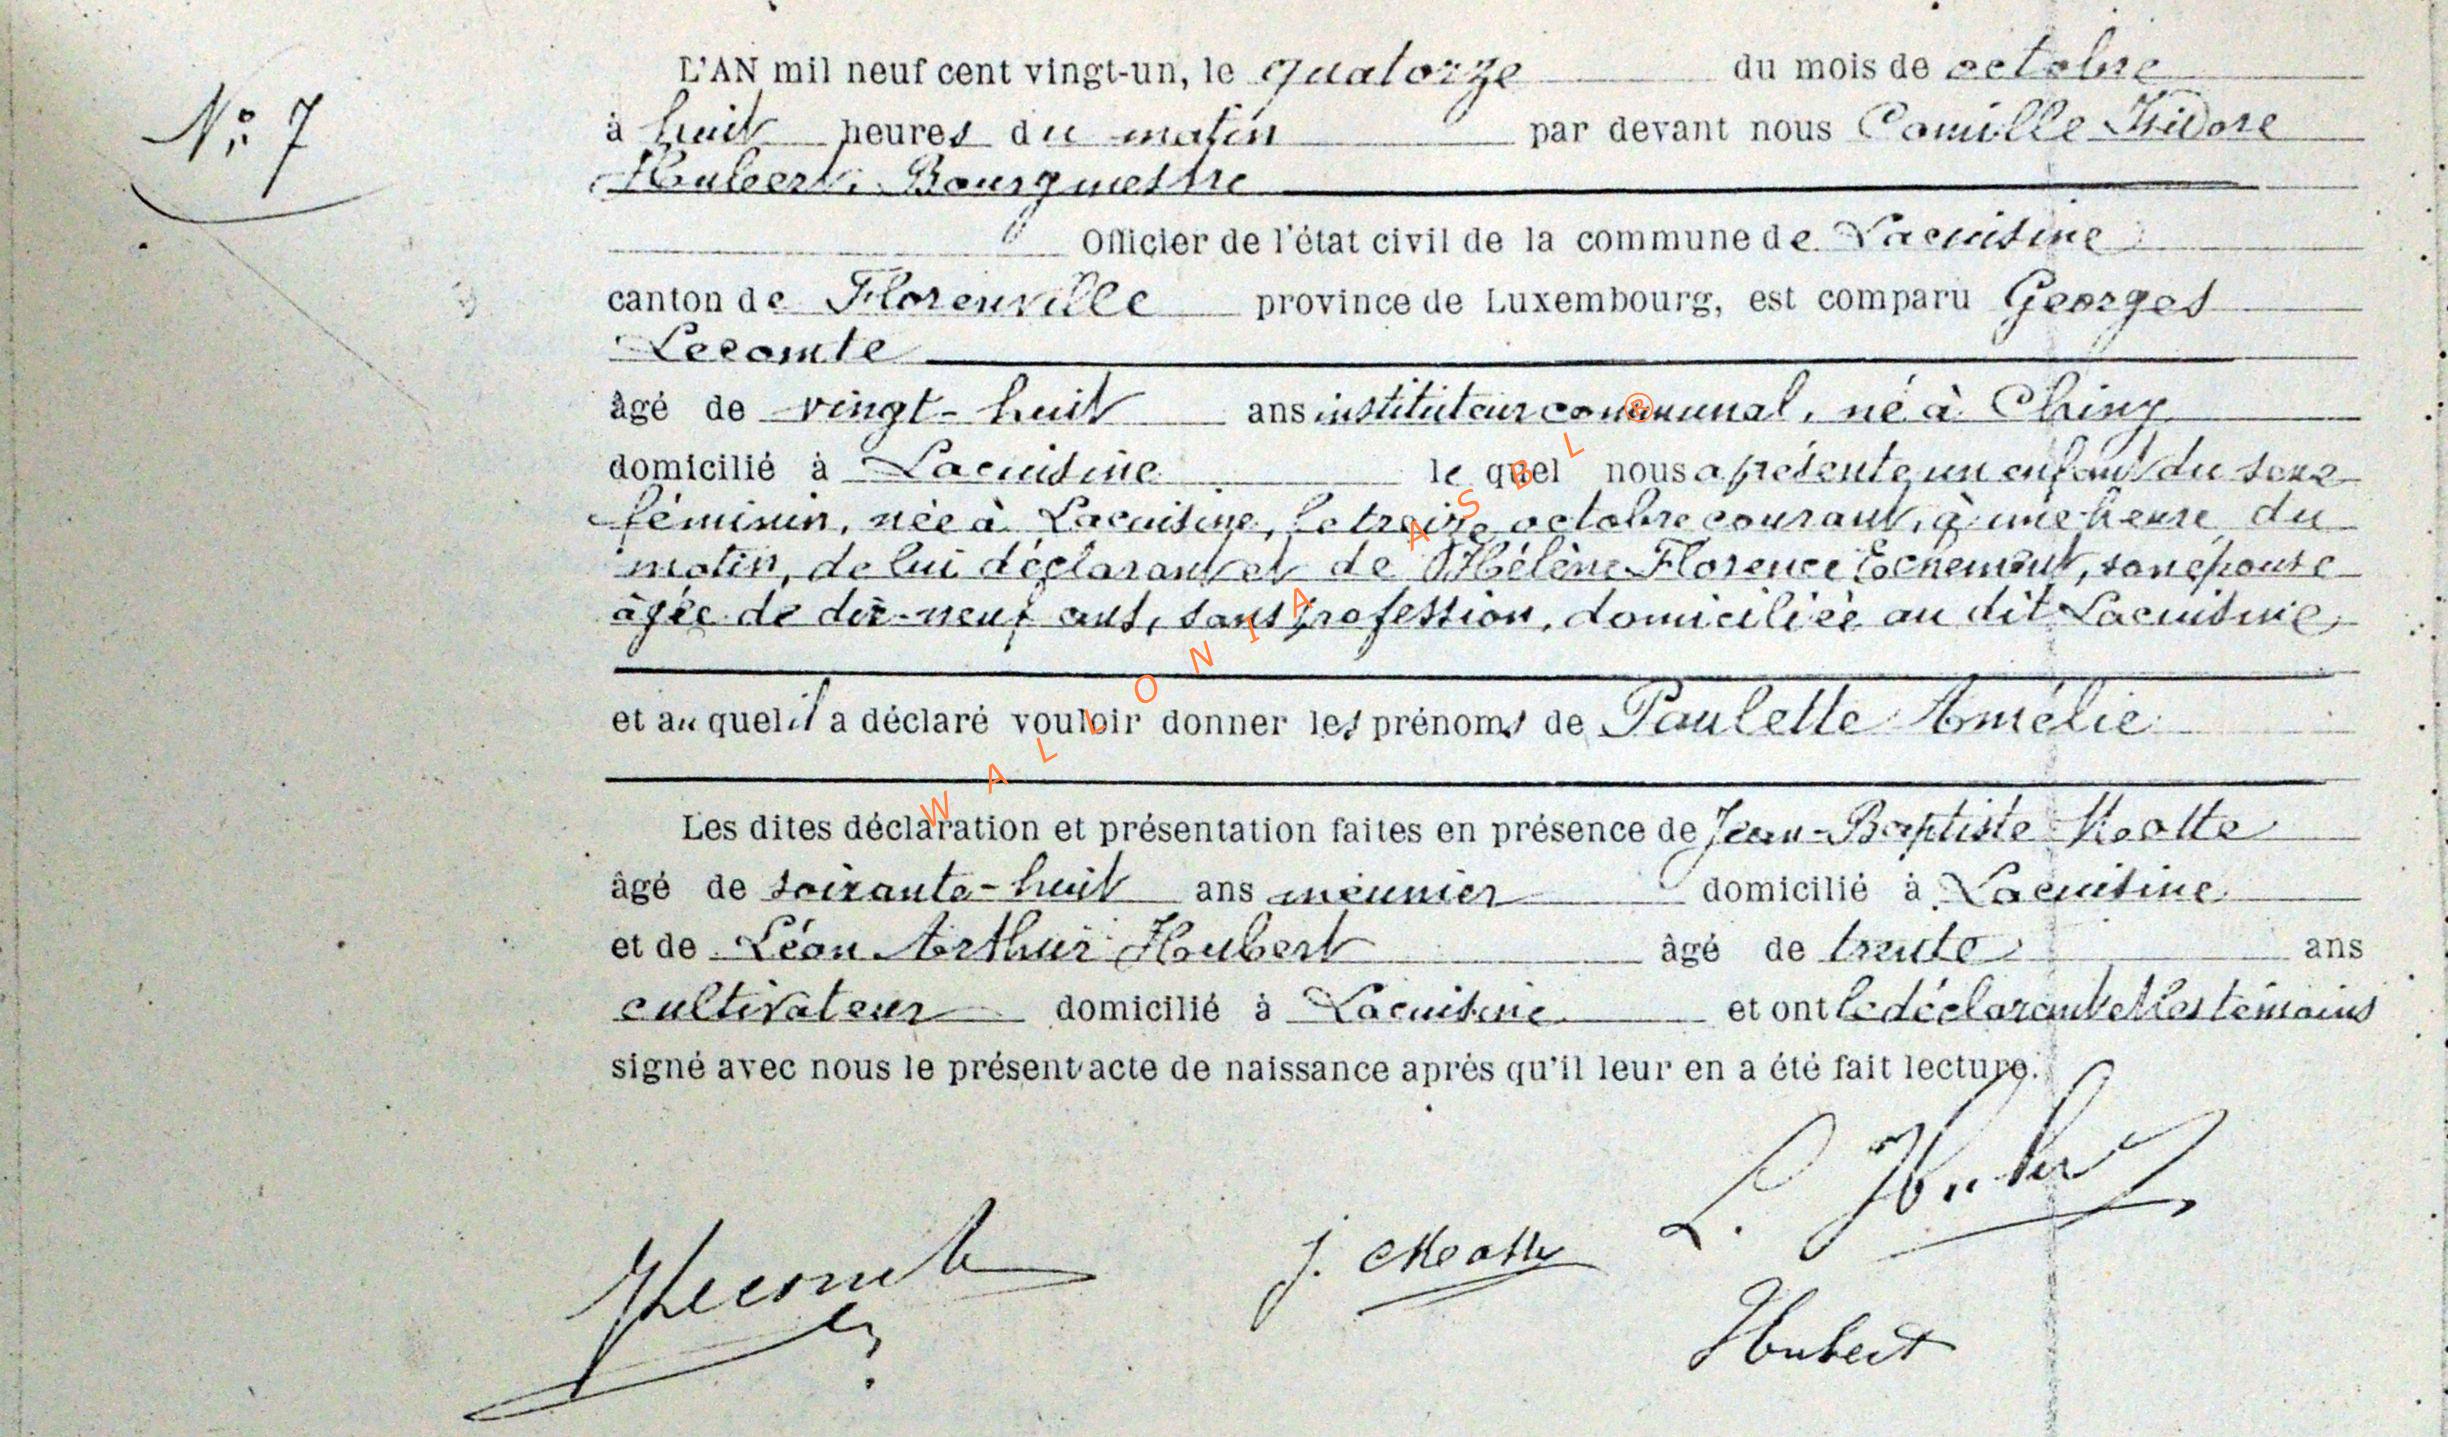 L'AN mil neuf cent vingt-un, le quatorze du mois de octobre
N° 7
à huit heures du matin par devant nous Camille Isidore
Hubert, Bourgmestre
Officier de l'état civil de la commune de Lacuisine
canton de Florenville province de Luxembourg, est comparu Georges
Lecomte
âgé de vingt-huit ans instituteur communal, né à Chiny
domicilié à Lacuisine le quel nous a présenté un enfant du sexe
féminin, née à Lacuisine, le treize octobre courant, à une heure du
matin, de lui déclarant et de Hélène Florence, son épouse
âgée de dix-neuf ans, sans profession, domiciliée au dit Lacuisine,
et au quel il a déclaré vouloir donner les prénoms de Paulette Amélie
WALLONIA ASBL ®
Les dites déclaration et présentation faites en présence de Jean-Baptiste
âgé de soixante-huit ans meunier domicilié à Lacuisine
et de Léon Arthur Hubert âgé de trente ans
cultivateur domicilié à Lacuisine et ont le déclarant et les témoins
signé avec nous le présent acte de naissance après qu'il leur en a été fait lecture.
L. Hubert
Lecomte
J.
Hubert